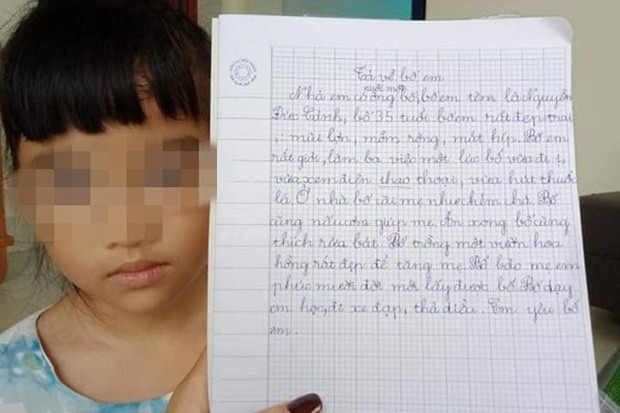 Tả về bố em
nuôi một
Nhà em có ông bố, bố em tên là Nguyễn
Đức Cảnh, bố 35 tuổi bố em rất đẹp trai
,: mũi lợn, mồm rộng, mắt híp. Bố em
rất giỏi, làm ba việc một lúc bố vừa đi ị,
vừa xem điện thao thoại, vừa hút thuốc
lá. Ở nhà bố cãi mẹ như chém chả. Bố
cũng nấu cơm giúp mẹ. Ăn xong bố cũng
thích rửa bát. Bố trồng một vườn hoa
hồng rất đẹp để tặng mẹ. Bố bảo mẹ em
phúc mười đời mới lấy được bố. Bố dạy
em học, đi xe đạp, thả diều. Em yêu bố
em.